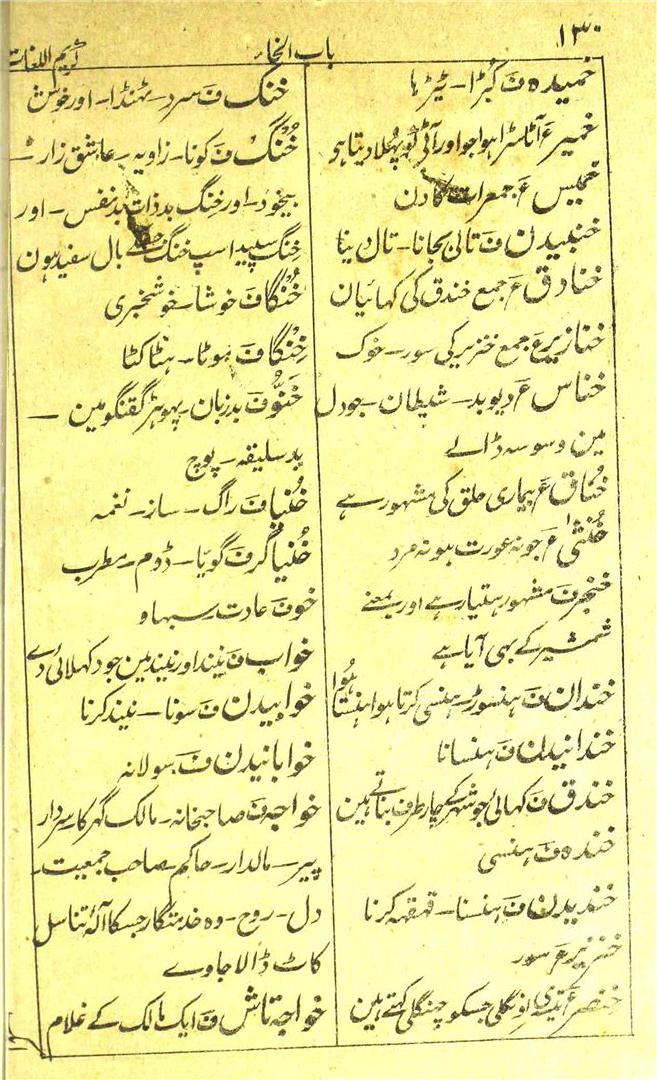 ۱۳۰
باب الخاء
کریم اللغات
خمیدہ ف کبڑا۔ ٹیڑہا
خمیر ع آٹا سڑا ہوا جو اور آٹی کو پھلا دیتا ہی
خمیس ع جمعرات کا دن
خنبیدن ف تالی بجانا۔ تال دینا
خنادق ع جمع خندق کی کھائیان
خنازیر ع جمع خنزیر کی سور۔ خوک
خناس ع دیو بد۔ شیطان۔ جو دل
مین وسوسہ ڈالے
خُناق ع بیماری حلق کی مشہور ہے
خُنثیٰ ع جو نہ عورت ہو نہ مرد
خنجر ف مشہور ہتیار ہے اور بمعنے
شمشیر کے بہی آیا ہے
خندان ف ہنسوڑ۔ ہنسی کرتا ہوا ہنستا ہُوا
خندانیدن ف ہنسانا
خندق ف کھائی جو شہر کے چار طرف بناتے ہین
خندہ ف ہنسی
خندیدن ف ہنسنا۔ قہقہہ کرنا
خنزیر ع سور
خنصر ع اونگلی جسکو چنگلی کہتے ہین
خنک ف سرد۔ ٹہنڈا۔ اور خوش
خُنگ ف کونا۔ زاویہ۔ عاشق زار۔
بیخود۔ اور خِنگ بدذات بدنفس۔ اور
خِنگ سپید اسپ خنگ جسکے بال سفید ہون
خُنُکا ف خوشا۔ خوشخبری
خِنگا ف ہوٹا۔ ہٹا کٹا
خَنُو ف بدزبان۔ پہوہڑ گفتگو مین۔
بد سلیقہ۔ پوچ
خُنیا ف راگ۔ ساز۔ نغمہ
خُنیاگر ف گویّا۔ ڈوم۔ مطرب
خو ف عادت سبہاو
خواب ف نیند اور نیند مین جو دکہلائی دے
خوابیدن ف سونا۔ نیند کرنا
خوابانیدن ف سولانہ
خواجہ ف صاحبخانہ۔ مالک گہر کا سردار
پیر۔ مالدار۔ حاکم۔ صاحب جمعیت۔
دل۔ روح۔ وہ خدمتگار جسکا آلۂ تناسل
کاٹ ڈالا جاوے
خواجہ تاش ف ایک مالک کے غلام